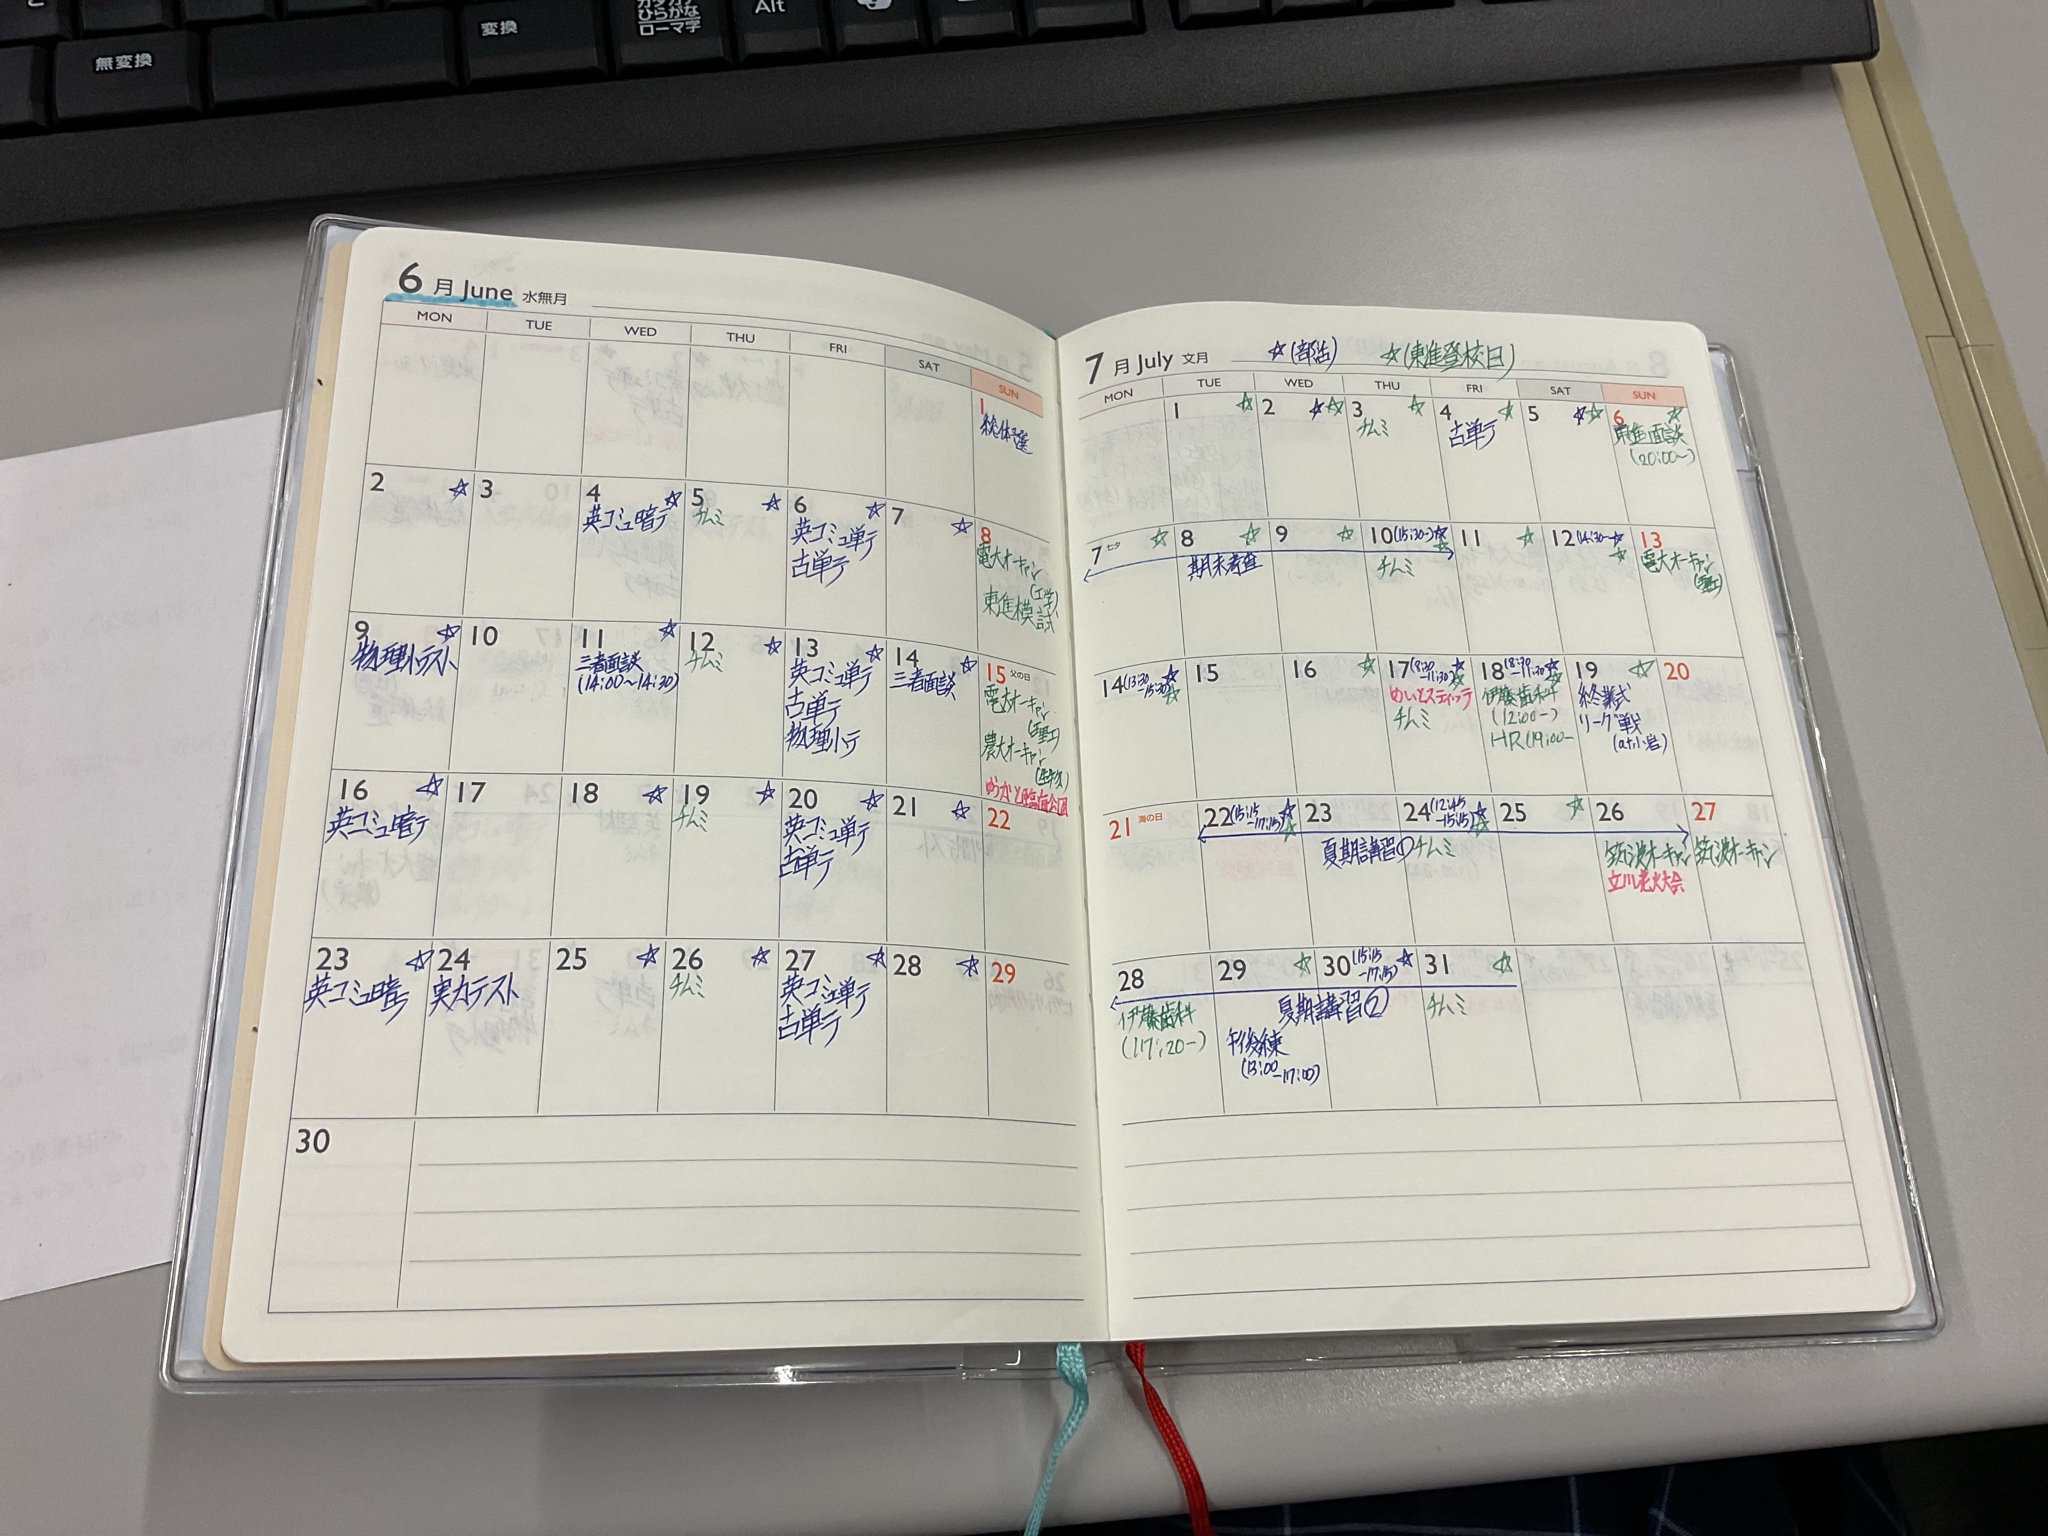 無変換
変換
カタカナ
ひらがな
ローマ字
Alt
6月 June 水無月
MON TUE WED THU FRI SAT SUN
1
総体選
2 ☆ 3 4 ☆ 5 ☆ 6 ☆ 7 ☆ 8
英コミュ暗テ
チムミ
英コミュ単テ
古単テ
電大オーキャン
(工学)
東進模試
9 ☆ 10 11 ☆ 12 ☆ 13 14 ☆ 15 父の日
物理小テスト
三者面談
(14:00〜14:30)
チムミ
英コミュ単テ
古単テ
物理小テ
三者面談
電大オーキャン
(理工)
農大オーキャン
(生物)
16 ☆ 17 18 ☆ 19 ☆ 20 ☆ 21 ☆ 22
英コミュ暗テ
チムミ
英コミュ単テ
古単テ
23 ☆ 24 25 ☆ 26 ☆ 27 ☆ 28 ☆ 29
英コミュ暗テ
実力テスト
チムミ
英コミュ単テ
古単テ
30
7月 July 文月 ☆(部活) ☆(東進登校日)
MON TUE WED THU FRI SAT SUN
1 ☆ 2 ☆☆ 3 ☆ 4 ☆ 5 ☆☆ 6 ☆
チムミ
古単テ
東進面談
(20:00〜)
7 七夕 ☆ 8 ☆ 9 ☆ 10 (15:30-)☆☆ 11 ☆ 12 (14:30〜☆☆ 13
期末考査
チムミ
電大オーキャン
(理工)
14 (13:30-15:30)☆☆ 15 16 ☆ 17 (8:30-11:30)☆☆ 18 (8:30-11:30)☆☆ 19 ☆ 20
チムミ
伊藤歯科
(12:00-)
HR(19:00-
終業式
リーグ戦
(at小岩)
21 海の日 22 (15:15-17:15)☆☆ 23 24 (12:45-15:15)☆☆ 25 ☆ 26 27
夏期講習①
チムミ
筑波オーキャン
立川花火大会
筑波オーキャン
28 29 ☆ 30 (15:15-17:15)☆ 31 ☆
夏期講習②
伊藤歯科
(17:20-)
午後練
(13:00-17:00)
チムミ